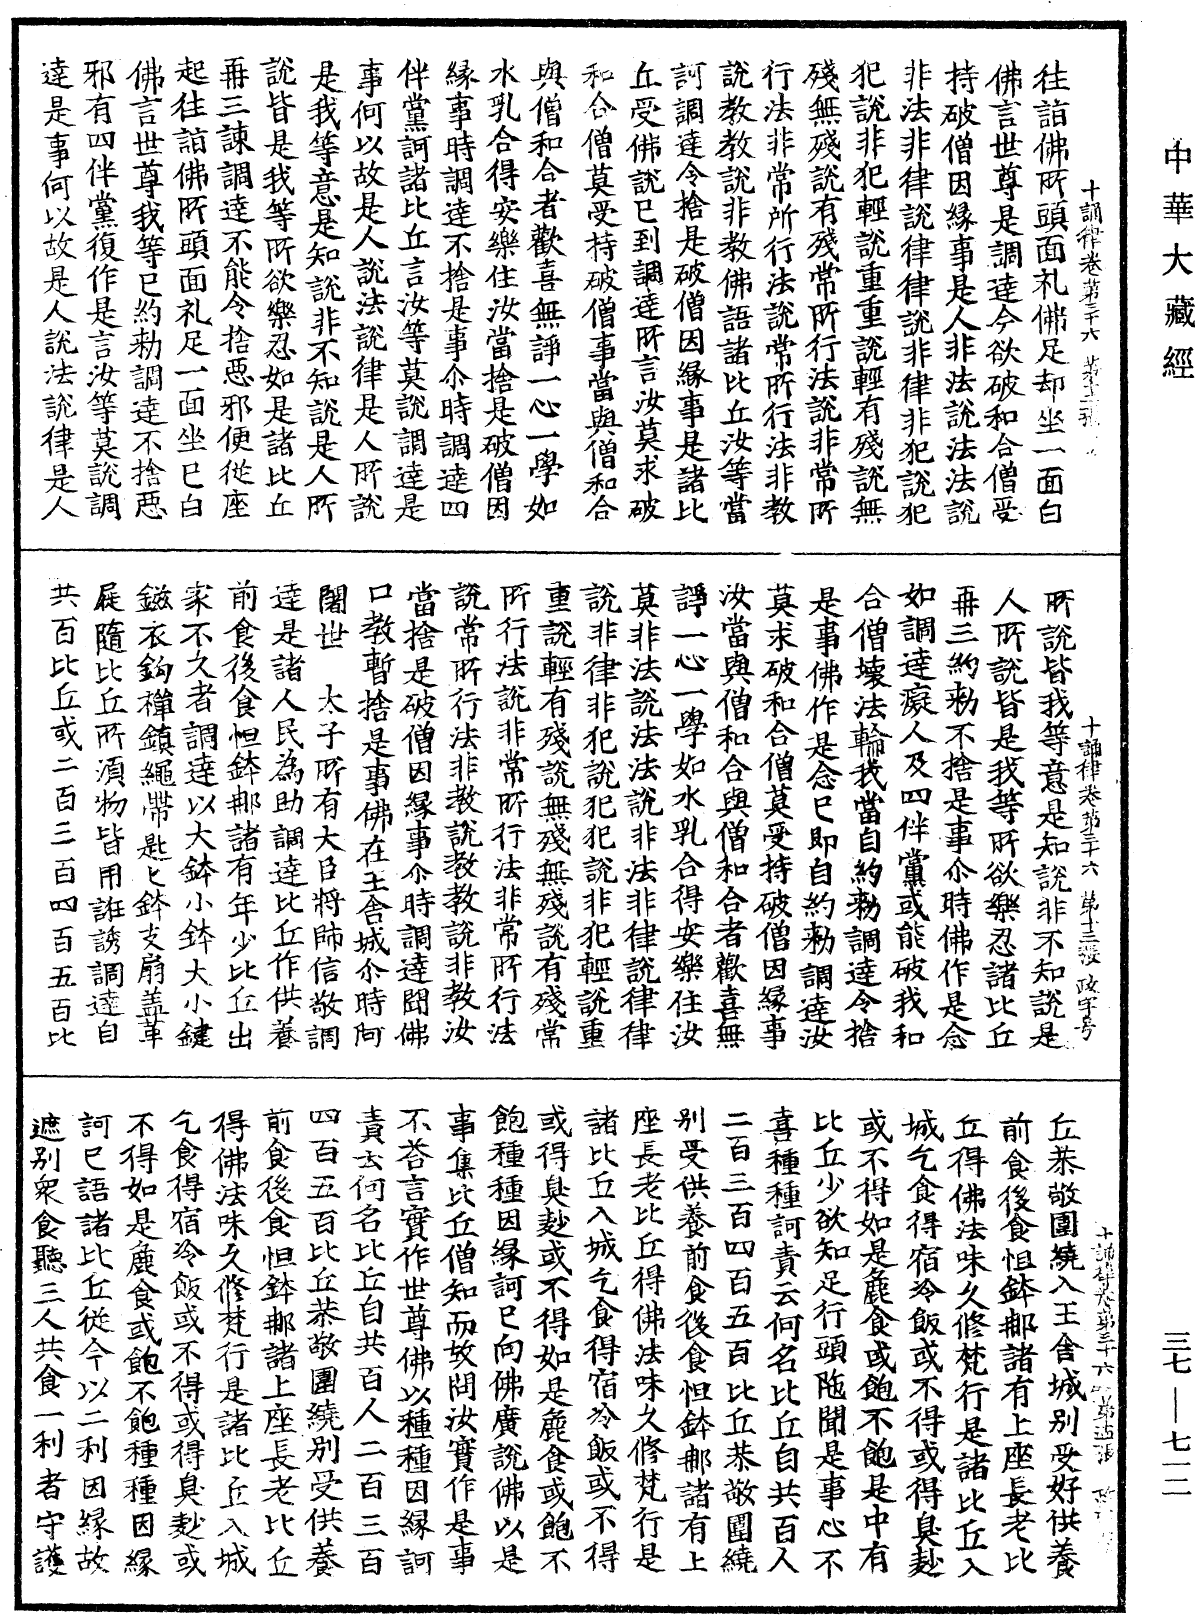 中華大藏經
十誦律卷第三十六
往詣佛所頭面礼佛足却坐一面白
佛言世尊是調達今欲破和合僧受
持破僧因緣事是人非法說法法說
非法非律說律律說非律非犯說犯
犯說非犯輕說重重說輕有殘說無
殘無殘說有殘常所行法說非常所
行法非常所行法說常所行法非教
說教教說非教佛語諸比丘汝等當
訶調達令捨是破僧因緣事是諸比
丘受佛說已到調達所言汝莫求破
和合僧莫受持破僧事當與僧和合
與僧和合者歡喜無諍一心一學如
水乳合得安樂住汝當捨是破僧因
緣事時調達不捨是事尒時調達四
伴黨訶諸比丘言汝等莫說調達是
事何以故是人說法說律是人所說
是我等意是知說非不知說是人所
說皆是我等所欲樂忍如是諸比丘
再三諫調達不能令捨惡邪便從座
起往詣佛所頭面礼足一面坐已白
佛言世尊我等已約勑調達不捨惡
邪有四伴黨復作是言汝等莫說調
達是事何以故是人說法說律是人
十誦律卷第三十六 第十三張 政字号
所說皆我等意是知說非不知說是
人所說皆是我等所欲樂忍諸比丘
再三約勑不捨是事尒時佛作是念
如調達癡人及四伴黨或能破我和
合僧壞法輪我當自約勑調達令捨
是事佛作是念已即自約勑調達汝
莫求破和合僧莫受持破僧因緣事
汝當與僧和合與僧和合者歡喜無
諍一心一學如水乳合得安樂住汝
莫非法說法法說非法非律說律律
說非律非犯說犯犯說非犯輕說重
重說輕有殘說無殘無殘說有殘常
所行法說非常所行法非常所行法
說常所行法非教說教教說非教汝
當捨是破僧因緣事尒時調達聞佛
口教暫捨是事佛在王舍城尒時阿
闍世 太子所有大臣將帥信敬調
達是諸人民為助調達比丘作供養
前食後食怛鉢那諸有年少比丘出
家不久者調達以大鉢小鉢大小鍵
鎡衣鉤禪鎮繩帶匙匕鉢支扇盖革
屣隨比丘所須物皆用誑誘調達自
共百比丘或二百三百四百五百比
十誦律卷第三十六
丘恭敬圍繞入王舍城別受好供養
前食後食怛鉢那諸有上座長老比
丘得佛法味久修梵行是諸比丘入
城乞食得宿冷飯或不得或得臭麨
或不得如是麁食或飽不飽是中有
比丘少欲知足行頭陁聞是事心不
喜種種訶責云何名比丘自共百人
二百三百四百五百比丘恭敬圍繞
別受供養前食後食怛鉢那諸有上
座長老比丘得佛法味久修梵行是
諸比丘入城乞食得宿冷飯或不得
或得臭麨或不得如是麁食或飽不
飽種種因緣訶已向佛廣說佛以是
事集比丘僧知而故問汝實作是事
不荅言實作世尊佛以種種因緣訶
責云何名比丘自共百人二百三百
四百五百比丘恭敬圍繞別受供養
前食後食怛鉢那諸上座長老比丘
得佛法味久修梵行是諸比丘入城
乞食得宿冷飯或不得或得臭麨或
不得如是麁食或飽不飽種種因緣
訶已語諸比丘從今以二利因緣故
遮別衆食聽三人共食一利者守護
三七—七一二